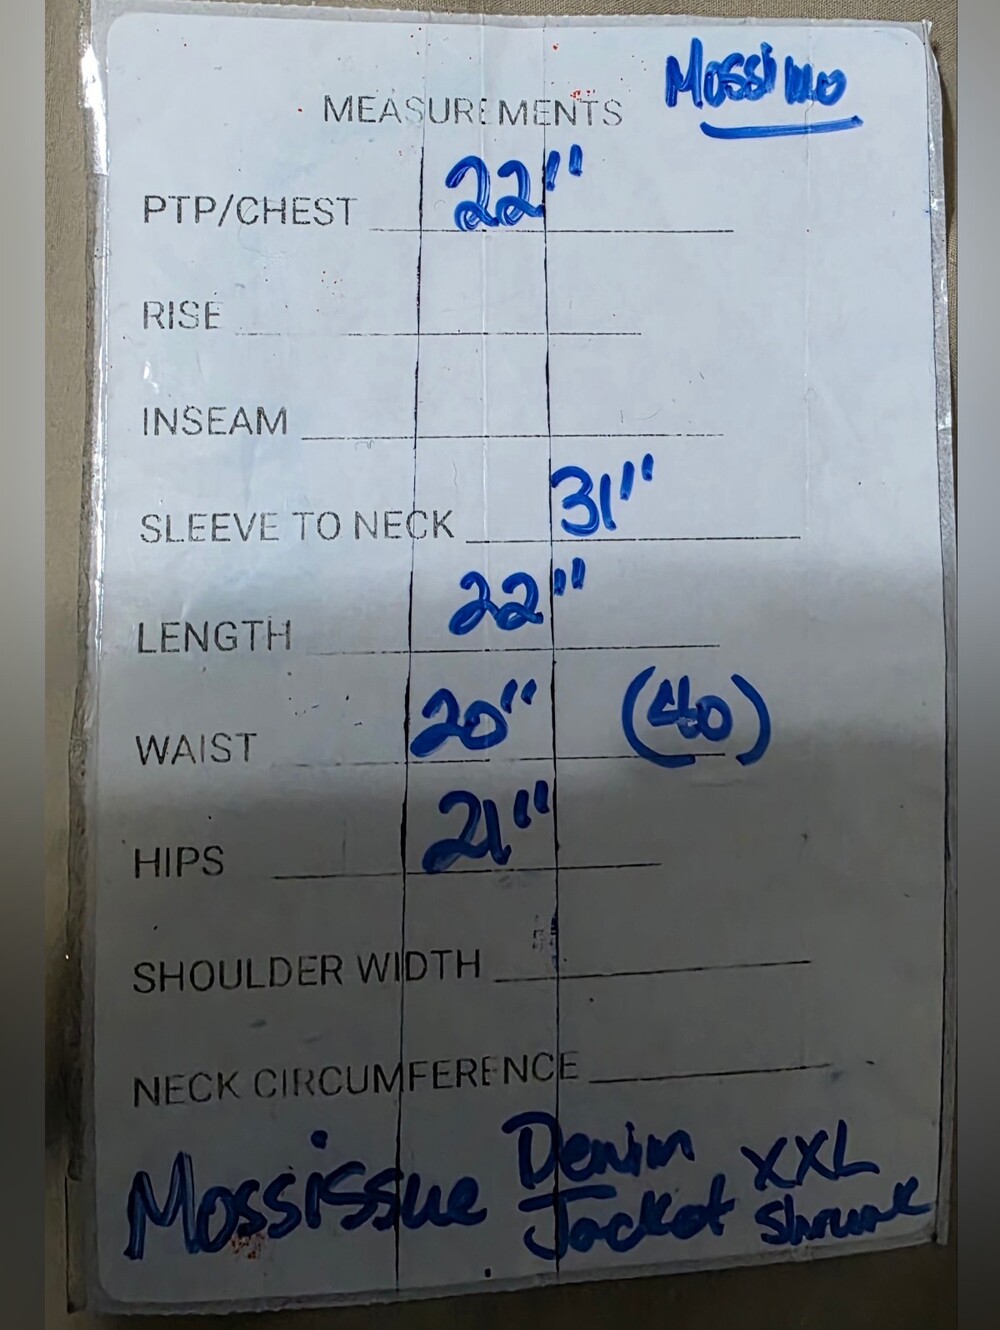 Mossimo
MEASUREMENTS
PTP/CHEST 22"
RISE
INSEAM
SLEEVE TO NECK 31"
LENGTH 22"
WAIST 20" (40)
HIPS 21"
SHOULDER WIDTH
NECK CIRCUMFERENCE
Mossissue Denim Jacket XXL Shrunk